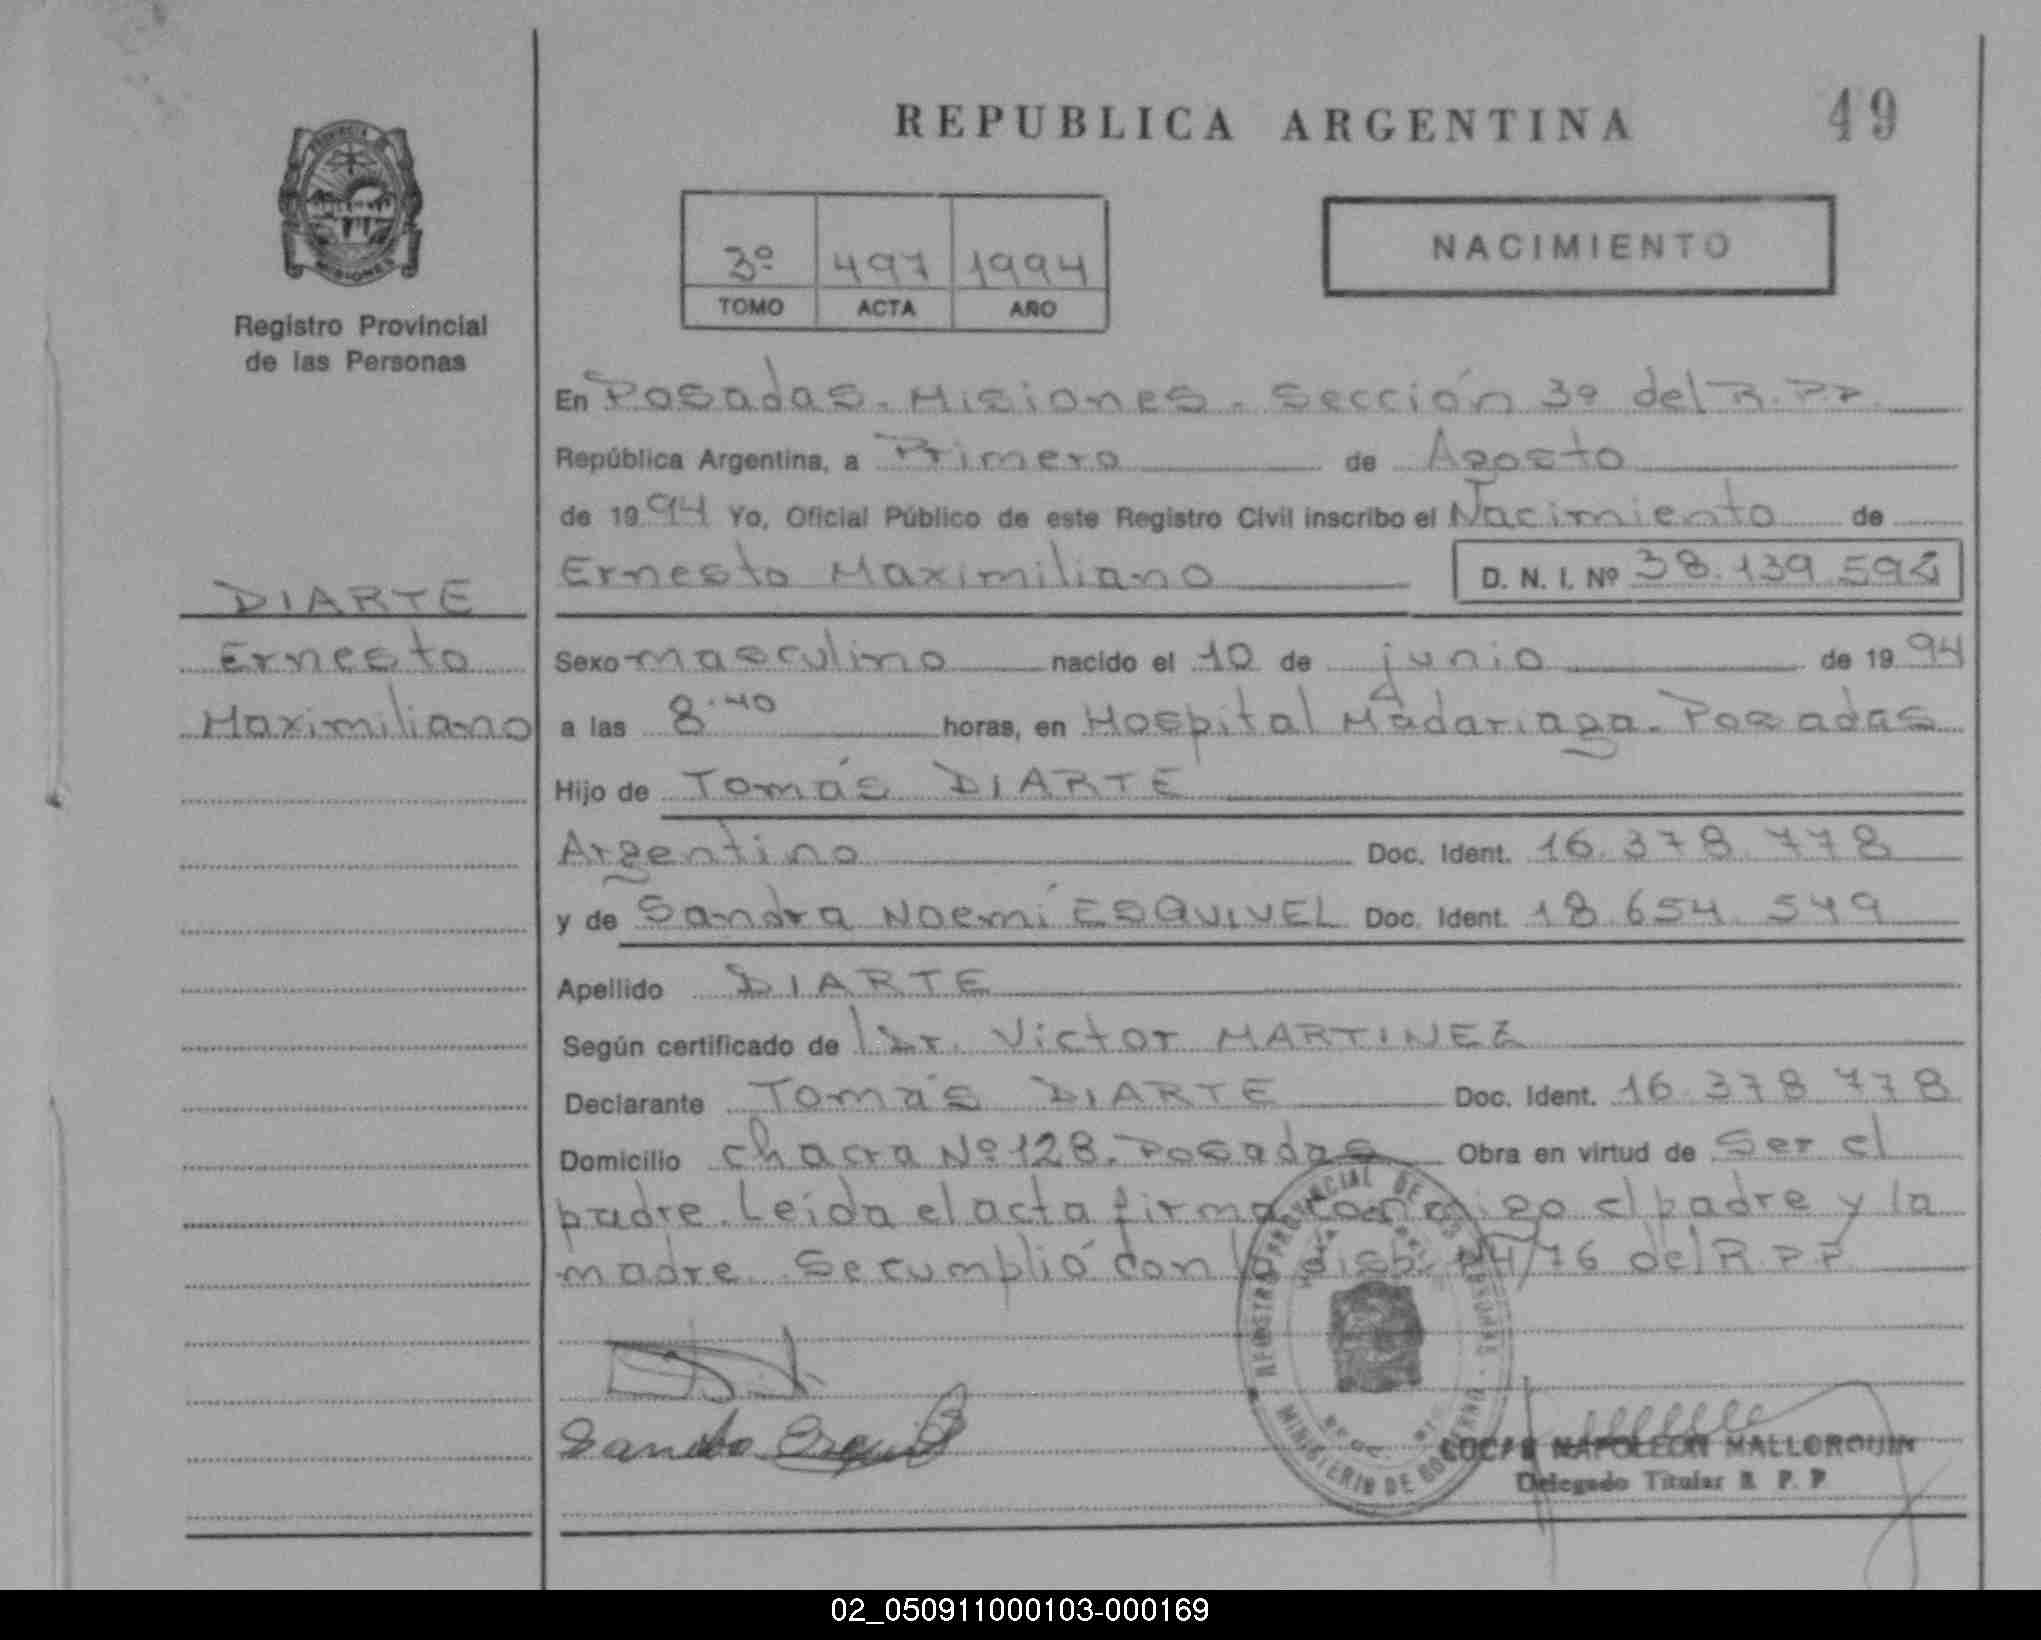 REPUBLICA ARGENTINA
49
3º 497 1994
TOMO ACTA AÑO
NACIMIENTO
Registro Provincial
de las Personas
En Posadas - Misiones - Sección 3º del R.P.P.
República Argentina, a Primero de Agosto
de 1994 Yo, Oficial Público de este Registro Civil inscribo el Nacimiento de
Ernesto Maximiliano D. N. I. Nº 38.139.594
DIARTE
Ernesto
Maximiliano
Sexo masculino nacido el 10 de junio de 1994
a las 8:40 horas, en Hospital Madariaga - Posadas
Hijo de Tomás DIARTE
Argentino Doc. Ident. 16.378.778
y de Sandra Noemí ESQUIVEL Doc. Ident. 18.654.549
Apellido DIARTE
Según certificado de Dr. Victor MARTINEZ
Declarante Tomás DIARTE Doc. Ident. 16.378.778
Domicilio chacra Nº 128. Posadas Obra en virtud de ser el
padre. Leída el acta firma conmigo el padre y la
madre. Se cumplió con la disp. 24/76 del R.P.P.
REGISTRO PROVINCIAL DE LAS PERSONAS - MINISTERIO DE GOBIERNO
Sandra Esquivel
NAPOLEON MALLORQUIN
Delegado Titular R. P. P.
02_050911000103-000169